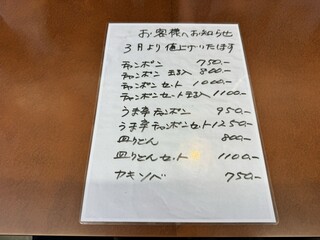 お客様へお知らせ
3月より値上げいたます
チャンポン 750.-
チャンポン 玉子入 800.-
チャンポン セット 1000.-
チャンポンセット玉子入 1100.-
うま辛 チャンポン 950.-
うま辛チャンポンセット 1250.-
皿うどん 800.-
皿うどんセット 1100.-
ヤキソバ 750.-